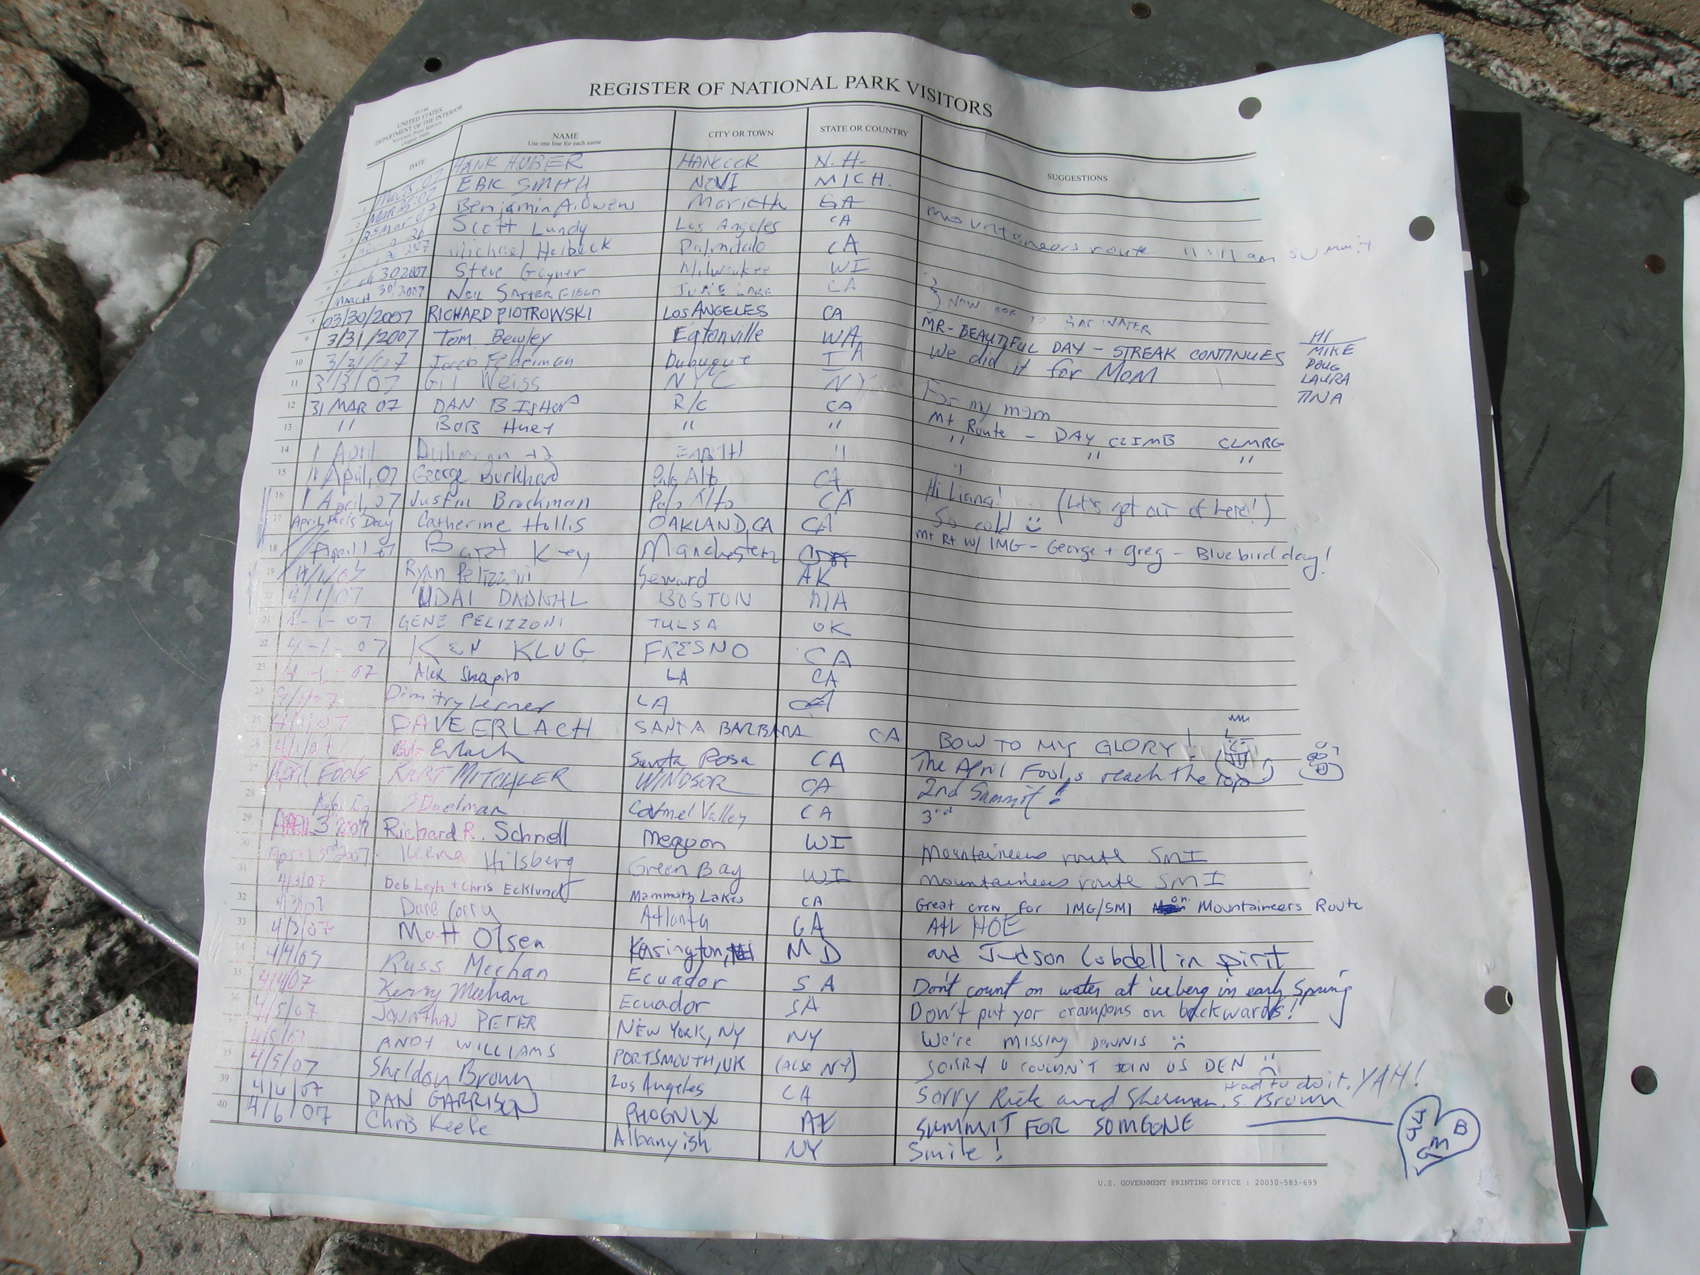 REGISTER OF NATIONAL PARK VISITORS
UNITED STATES
DEPARTMENT OF THE INTERIOR
DATE NAME CITY OR TOWN STATE OR COUNTRY SUGGESTIONS
Use one line for each name
HANK HUBER HANCOCK N.H.
ERIK SMITH NOVI MICH.
Benjamin A. Owens Marietta GA
Scott Lundy Los Angeles CA mountaineers route 11:11 am summit
Michael Heibeck Palmdale CA
302007 Steve Goyner Milwaukee WI
MARCH 30, 2007 NEIL SATTERFIELD JUNE LAKE CA
03/30/2007 RICHARD PIOTROWSKI LOS ANGELES CA
3/31/2007 Tom Bewley Eatonville WA MR - BEAUTIFUL DAY - STREAK CONTINUES
10 3/31/07 Jacob Dubuque IA We did it for MOM
HI
MIKE
DOUG
LAURA
TINA
11 3/31/07 Gil Weiss NYC NY For my mom
12 31 MAR 07 DAN BISHOP R/C CA Mt Route - DAY CLIMB CLMRG
13 " BOB Huey " " " " "
14 1 April EARTH "
15 1 April, 07 George Burkhard Palo Alto CA Hi Liana! (Let's get out of here!)
16 1 April, 07 Justin Brockman Palo Alto CA So cold
17 April Fools Day Catherine Hollis OAKLAND, CA CA Mt Rt w/ IMG - George + Greg - Bluebird day!
18 Manchester
4/1/07 Ryan Pelizzoni Seward AK
4/1/07 UDAI BOSTON MA
4-1-07 GENE PELIZZONI TULSA OK
22 4-1-07 KEN KLUG FRESNO CA
23 4-1-07 Alex Shapiro LA CA
4/1/07 Dimitry Lerner LA CA
4/1/07 DAVE ERLACH SANTA BARBARA CA BOW TO MY GLORY!
4/1/07 Erlach Santa Rosa CA The April Fools reach the top
April Fools KURT MITCHLER WINDSOR CA 2nd Summit!
Carmel Valley CA 3rd
April 3 2007 Richard P. Schnell Mequon WI Mountaineers route SMI
April 3rd 2007 Hilsberg Green Bay WI mountaineers route SMI
4/3/07 Deb Leyh + Chris Ecklund Mammoth Lakes CA Great crew for IMG/SMI on Mountaineers Route
32 Dave Corry Atlanta GA Atl HOE
Matt Olsen Kensington, MD and Judson Cobdell in spirit
Russ Meehan Ecuador SA Don't count on water at iceberg in early Spring
4/4/07 Kerry Meehan Ecuador SA Don't put yor crampons on backwards!
4/5/07 JONATHAN PETER NEW YORK, NY NY We're MISSING DENNIS
4/5/07 ANDY WILLIAMS PORTSMOUTH, UK (ALSO NY) SORRY U COULDN'T JOIN US DEN
4/5/07 Sheldon Brown Los Angeles CA Sorry Rick and Sherman. S Brown Had to do it. YAH!
39 4/6/07 DAN GARRISON PHOENIX AZ SUMMIT FOR SOMEONE
40 4/6/07 Chris Keefe Albanyish NY Smile!
U.S. GOVERNMENT PRINTING OFFICE : 2003O-585-699